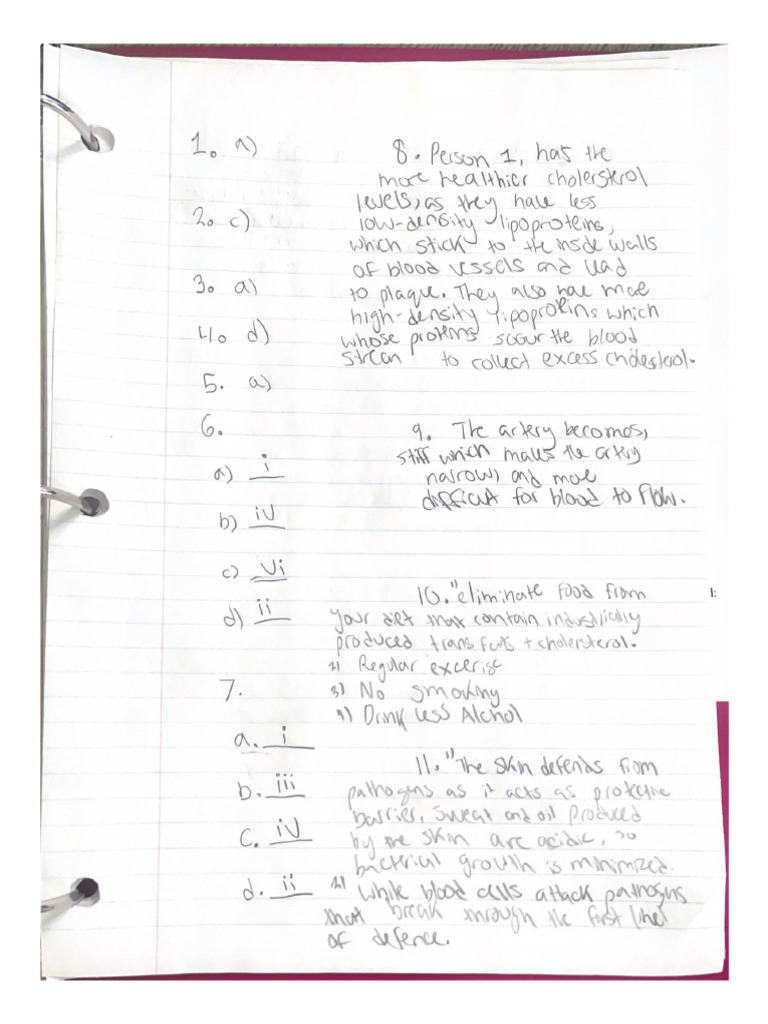 1. a)
2. c)
3. a)
4. d)
5. a)
6.
a) i
b) iv
c) vi
d) ii
7.
a. i
b. iii
c. iv
d. ii
8. Person 1, has the
more healthier cholersterol
levels, as they have less
low-density lipoproteins,
which stick to the inside walls
of blood vessels and lead
to plaque. They also have more
high-density lipoproteins which
whose proteins scour the blood
strean to collect excess cholesterol.
9. The artery becomes,
stiff which makes the artery
narrow, and more
difficult for blood to flow.
10. "eliminate food from
your diet that contain industrially
produced trans fats + cholersterol.
2) Regular excerise
3) No smoking
4) Drink less Alcohol
11. "The skin defends from
pathogens as it acts as protective
barrier, sweat and oil produced
by the skin are acidic, so
bacterical growth is minimized.
2) White blood cells attack pathogens
that break through the first line
of defence.
1: